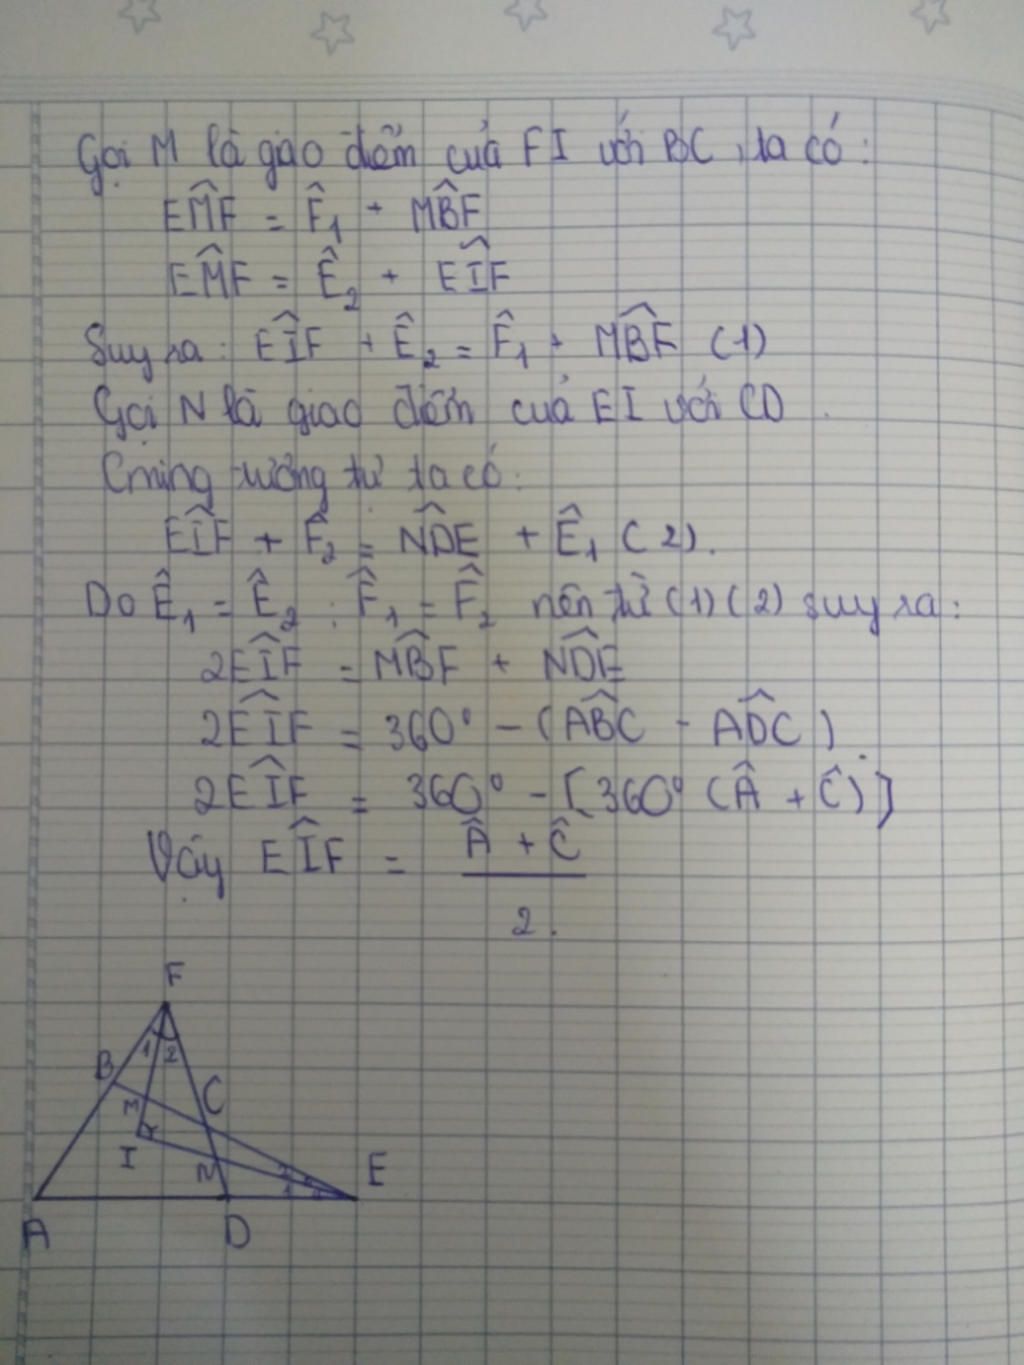 Gọi M là giao điểm của FI với BC, ta có:
EM̂F = F̂₁ + MB̂F
EM̂F = Ê₂ + EÎF
Suy ra: EÎF + Ê₂ = F̂₁ + MB̂F (1)
Gọi N là giao điểm của EI với CD.
Cming tương tự ta có:
EÎF + F̂₂ = ND̂E + Ê₁ (2).
Do Ê₁ = Ê₂ ; F̂₁ = F̂₂ nên từ (1) (2) suy ra:
2EÎF = MB̂F + ND̂E
2EÎF = 360° - (AB̂C - AD̂C).
2EÎF = 360° - [360° (Â + Ĉ)]
Vậy EÎF = Â + Ĉ
2.
F
1 2
B
C
M
I
N
2
1
E
A
D